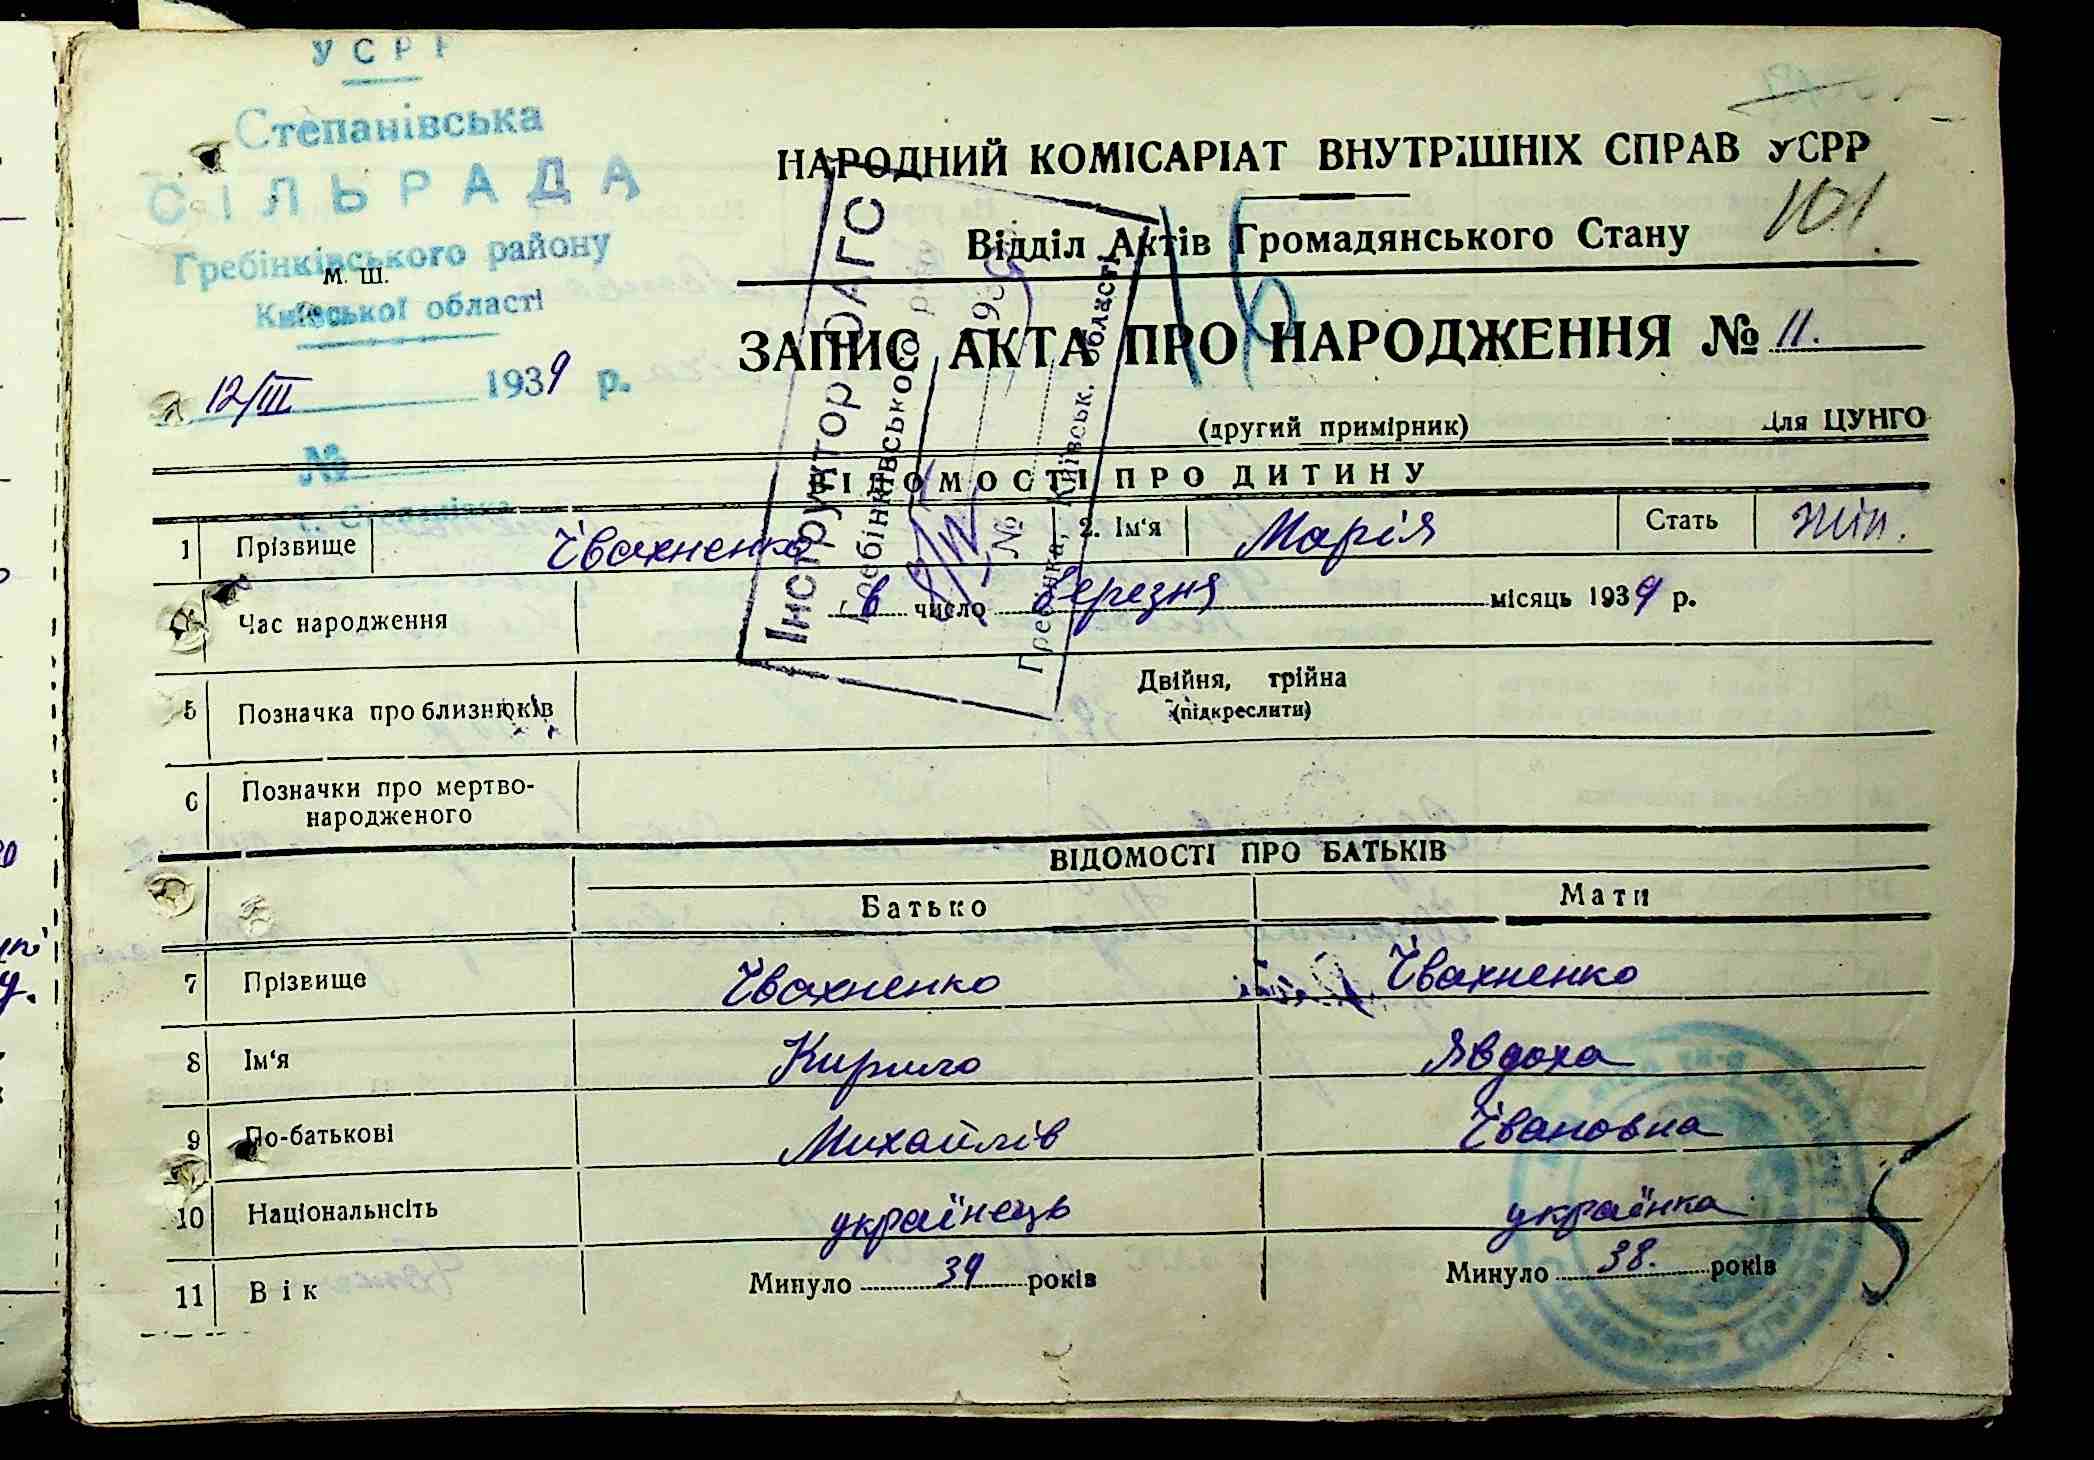 УСРР
Степанівська
СІЛЬРАДА
Гребінківського району
м. ш.
Київської області
12/III 1939 р.
№
НАРОДНИЙ КОМІСАРІАТ ВНУТРІШНІХ СПРАВ УСРР
101
Відділ Актів Громадянського Стану
16
ЗАПИС АКТА ПРО НАРОДЖЕННЯ № 11.
(другий примірник) Для ЦУНГО
Інструктор ЗАГС
Гребінківського р
193
№
Гребінка, Київськ. області
ВІДОМОСТІ ПРО ДИТИНУ
1 Прізвище Івахненко 2. Ім'я Марія Стать жін.
Час народження 6 число березня місяць 1939 р.
5 Позначка про близнюків Двійня, трійна
(підкреслити)
6 Позначки про мертво-
народженого
ВІДОМОСТІ ПРО БАТЬКІВ
Батько Мати
7 Прізвище Івахненко Івахненко
8 Ім'я Кирило Явдоха
9 По-батькові Михайлів Івановна
10 Національність українець українка
11 Вік Минуло 39 років Минуло 38. років